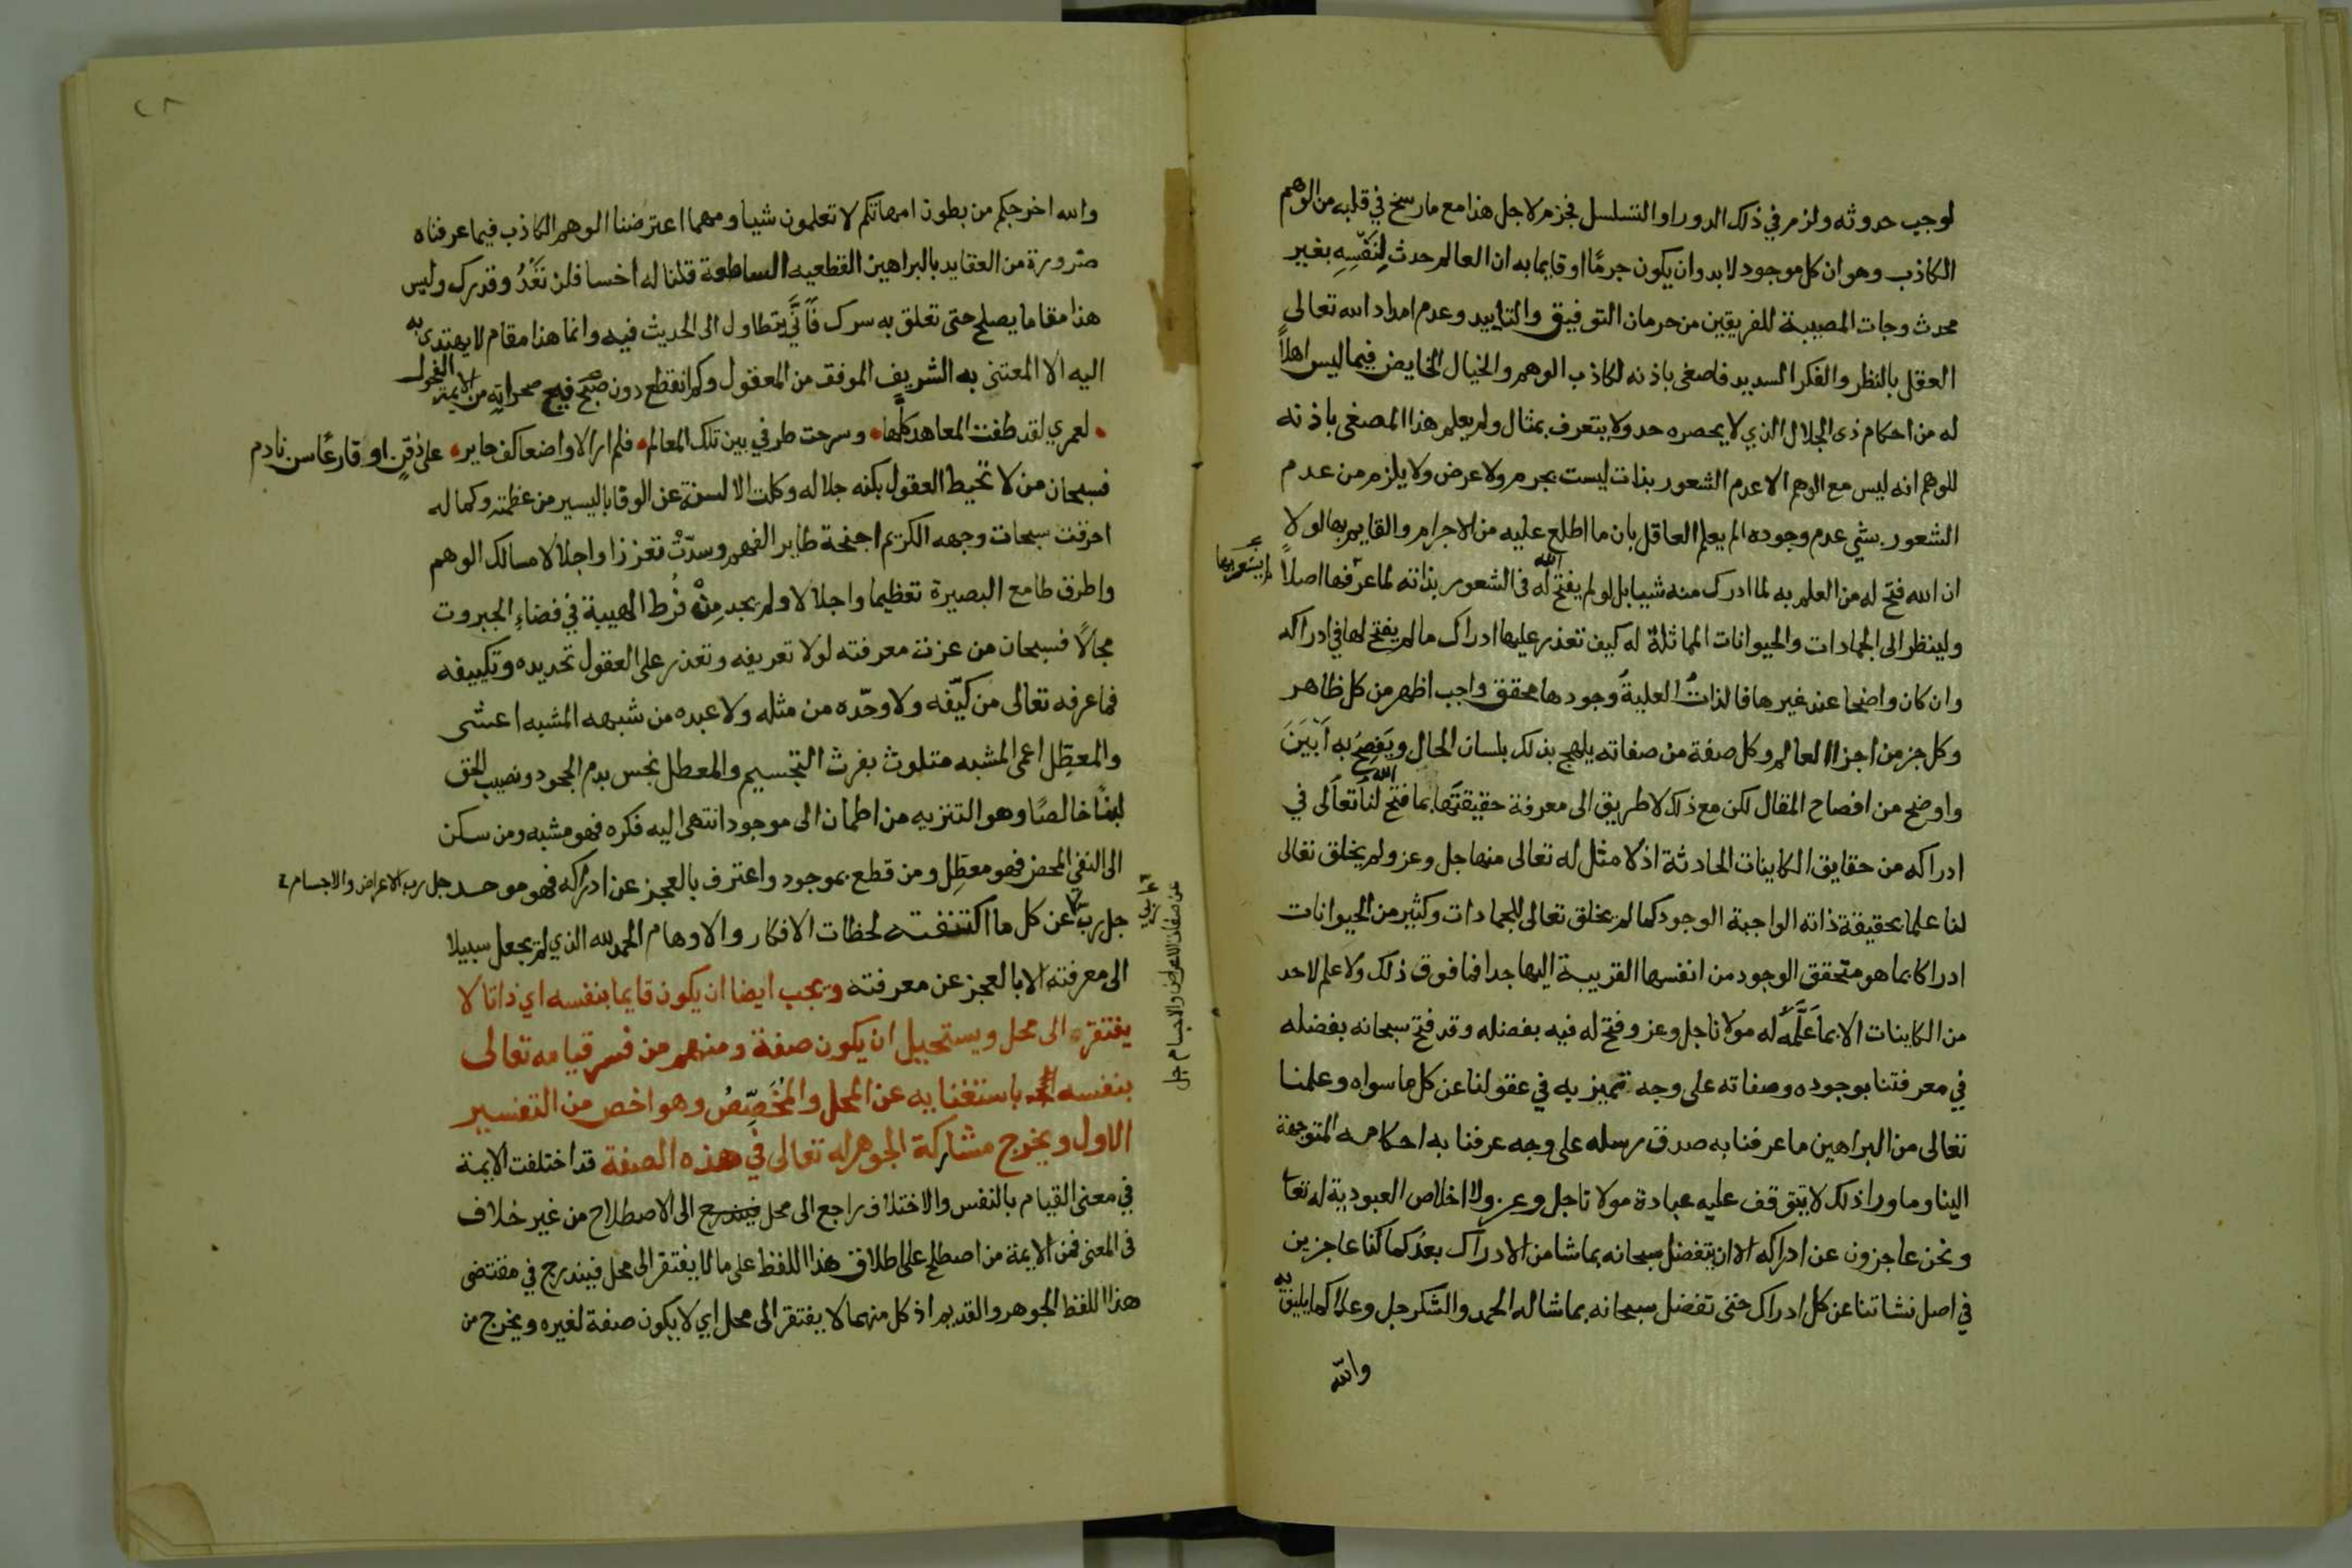 لوجب حدوثه ولزم في ذلك الدور او التسلسل فجزم لاجل هذا مع ما رسخ في قلبه من الوهم
الكاذب وهو ان كل موجود لا بد وان يكون جرمًا او قايما به ان العالم حدث لِنَفْسِهِ بغير
محدث وجات المصيبة للفريقين من حرمان التوفيق والتاييد وعدم امداد الله تعالى
العقل بالنظر والفكر السديد فاصغى باذنه لكاذب الوهم والخيال الخايض فيما ليس اهلاً
له من احكام ذي الجلال الذي لا يحصره حد ولا يتعرف بمثال ولم يعلم هذا المصغى باذنه
للوهم انه ليس مع الوهم الا عدم الشعور بذات ليست بجرم ولا عرض ولا يلزم من عدم
الشعور بشي عدم وجوده الم يعلم العاقل بان ما اطلع عليه من الاجرام والقايم بها لولا
ان الله فتح له من العلم به لما ادرك منه شيا بل لو لم يفتح الله له في الشعور بذاته لما عرفها اصلاً
ولينظر الى الجمادات والحيوانات المماثلة له كيف تعذر عليها ادراك ما لم يفتح لها في ادراكه
وان كان واضحا عند غيرها فالذاتُ العليةُ وجودها محقق واجب اظهر من كل ظاهر
وكل جز من اجزا العالم وكل صفة من صفاته يلهج بذلك بلسان الحال ويَفصِحُ به اَبْيَنَ
واوضح من افصاح المقال لكن مع ذلك لا طريق الى معرفة حقيقتها بما فتح لنا الله تعالى في
ادراكه من حقايق الكاينات الحادثة اذ لا مثل له تعالى منها جل وعز ولم يخلق تعالى
لنا علما بحقيقة ذاته الواجبة الوجود كما لم يخلق تعالى للجمادات وكثير من الحيوانات
ادراكا بما هو متحقق الوجود من انفسها القريبة اليها جدا فما فوق ذلك ولا علم لاحد
من الكاينات الا بما عَلَّمَهُ له مولانا جل وعز وفتح له فيه بفضله وقد فتح سبحانه بفضله
في معرفتنا بوجوده وصفاته على وجه تميز به في عقولنا عن كل ما سواه وعلمنا
تعالى من البراهين ما عرفنا به صدق رسله على وجه عرفنا به احكامه المتوجهة
الينا وما ورا ذلك لا تتوقف عليه عبادة مولانا جل وعز ولا اخلاص العبودية له تعا
ونحن عاجزون عن ادراكه الا ان يتفضل سبحانه بما شا من الادراك بعدُ كما كنا عاجزين
في اصل نشاتنا عن كل ادراك حتى تفضل سبحانه بما شا له الحمد والشكر جل وعلا كما يليق به
والله
والله اخرجكم من بطون امهاتكم لا تعلمون شيا ومهما اعترضنا الوهم الكاذب فيما عرفناه
ضرورة من العقايد بالبراهين القطعيه الساطعة قلنا له اخسا فلن تَعْدُ وقدرك وليس
هذا مقاما يصلح حتى تعلق به سرك فَاَنَّى يتطاول الى الحديث فيه وانما هذا مقام لا يهتدي به
اليه الا المعتنى به الشريف الموفق من المعقول وكم انقطع دون فيح صحرايه من الايمة الفحول
لعمري لقد طفت المعاهد كلها وسرحت طرفي بين تلك المعالم فلم ار الا واضعا كف حاير على ذقن او قارعًا سن نادم
فسبحان من لا تحيط العقول بكنه جلاله وكلت الالسنة عن الوفا باليسير من عظمته وكماله
احرقت سبحات وجهه الكريم اجنحة طاير الفهم وسدّتْ تعززا واجلالا مسالك الوهم
واطرق طامع البصيرة تعظيما واجلالا ولم يجد مِنْ فُرط الهيبة في فضاءِ الجبروت
مجالاً فسبحان من عزت معرفته لولا تعريفه وتعذر على العقول تحديده وتكييفه
فما عرفه تعالى من كيّفه ولا وحّده من مثله ولا عبده من شبهه المشبه اعشى
والمعطِّل اعمى المشبه متلوث بفرث التجسيم والمعطل نجس بدم الجحود ونصيب المحق
لبنًا خالصًا وهو التنزيه من اطمان الى موجود انتهى اليه فكره فهو مشبه ومن سكن
الى النفي المحض فهو معطِل ومن قطع بموجود واعترف بالعجز عن ادراكه فهو موحد جل رب الاعراض والاجسام
عن صفات الاعراض والاجسام جل
جل ربي عن كل ما اكتنفته لحظات الافكار والاوهام الحمد لله الذي لم يجعل سبيلا
الى معرفته الا بالعجز عن معرفته ويجب ايضا ان يكون قايما بنفسه اي ذاتا لا
يفتقر الى محل ويستحيل ان يكون صفة ومنهم من فسر قيامه تعالى
بنفسه باستغنايه عن المحل والمُخَصِّصُ وهو اخص من التفسير
الاول ويخرج مشاركة الجوهر له تعالى في هذه الصفة قد اختلفت الايمة
في معنى القيام بالنفس والاختلاف راجع الى محل فيندرج الى الاصطلاح من غير خلاف
في المعنى فمن الايمة من اصطلح على اطلاق هذا اللفظ على ما لا يفتقر الى محل فيندرج في مقتضى
هذا اللفظ الجوهر والقديم اذ كل منهما لا يفتقر الى محل اي لا يكون صفة لغيره ويخرج من